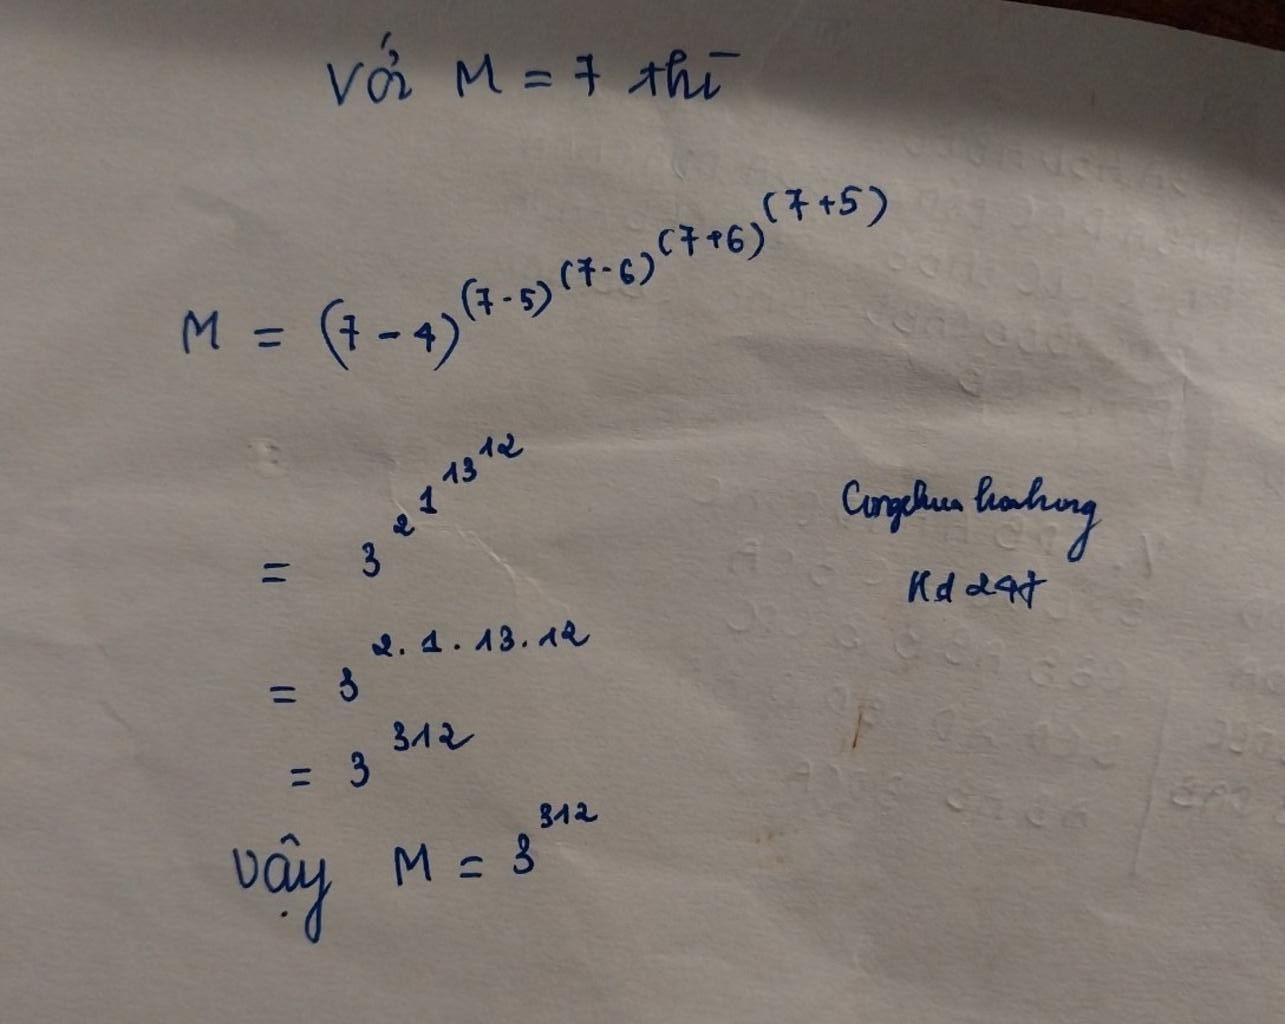 Với M = 7 thì
M = (7 - 4)^(7-5)^(7-6)^(7+6)^(7+5)
= 3^2^1^13^12
= 3^2.1.13.12
= 3^312
Vậy M = 3^312
Congchua hoahong
Kd 247